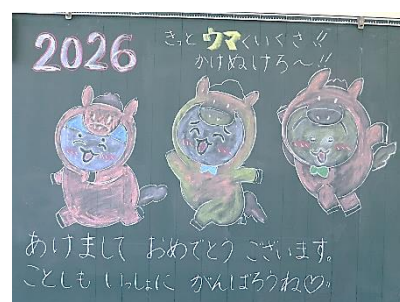 2026
きっとウマくいくさ!!
かけぬけろ〜!!
あけまして おめでとう ございます。
ことしも いっしょに がんばろうね♡